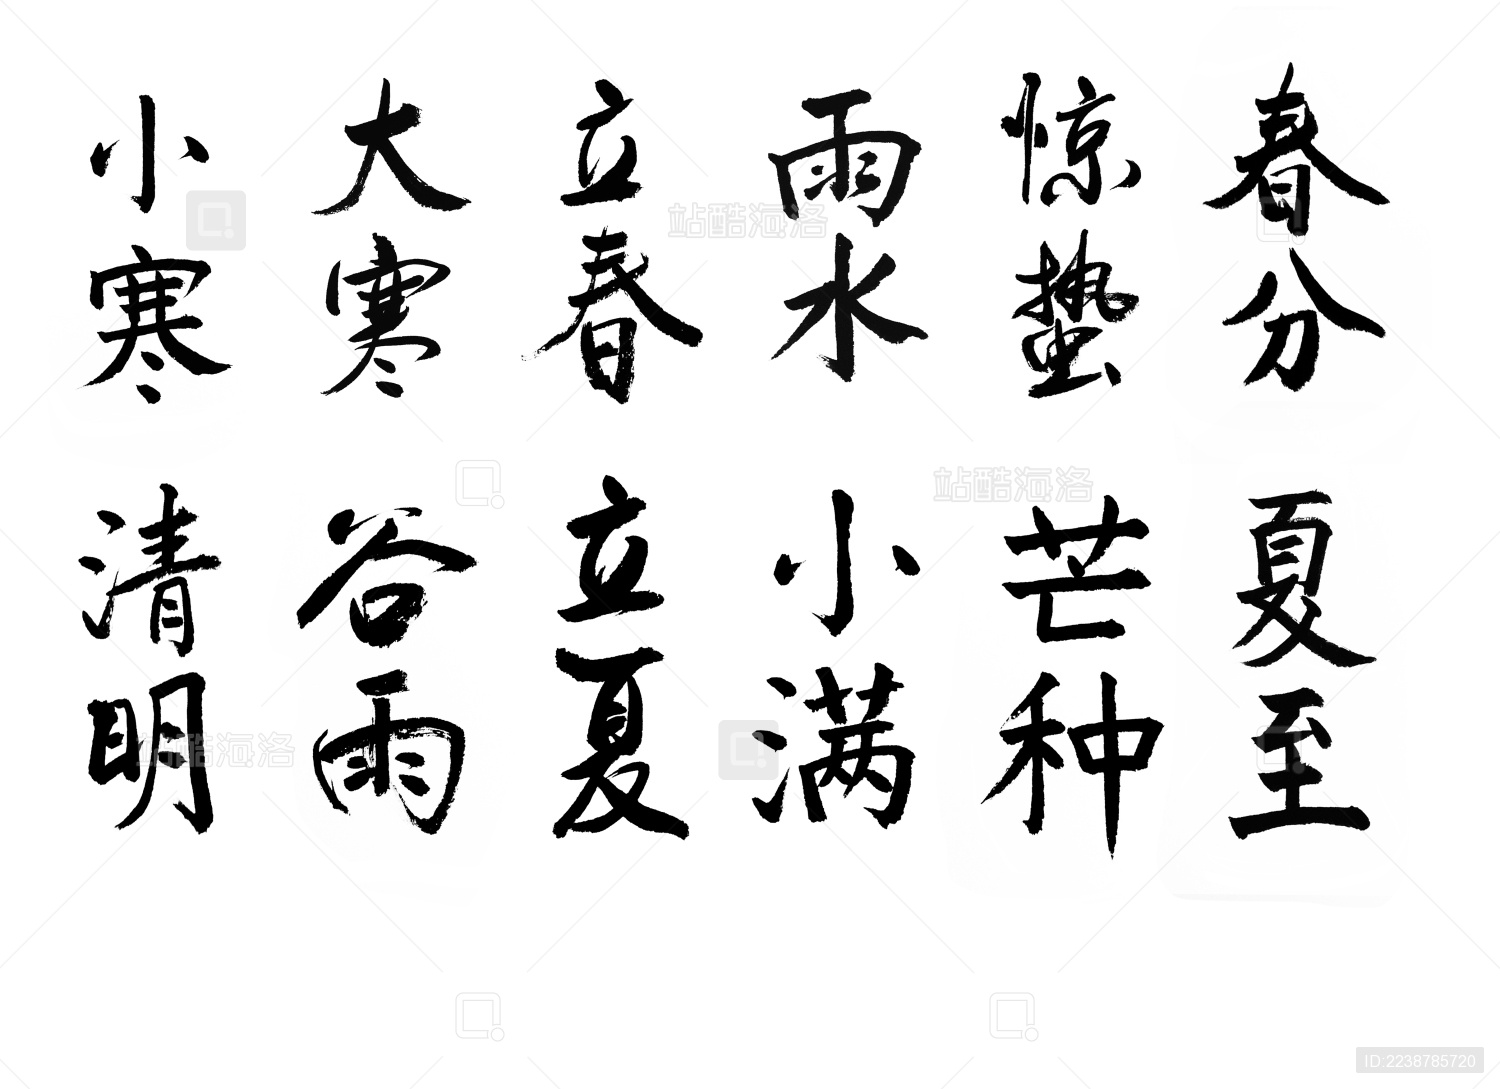 小寒
大寒
立春
雨水
惊蛰
春分
清明
谷雨
立夏
小满
芒种
夏至
站酷海洛
站酷海洛
站酷海洛
ID:2238785720